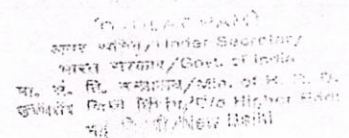 अवर सचिव/Under Secretary
भारत सरकार/Govt. of India
मा. सं. वि. मन्त्रालय/Min. of H. R. D.
उच्चतर शिक्षा विभाग/D/o Higher Edn.
नई दिल्ली/New Delhi